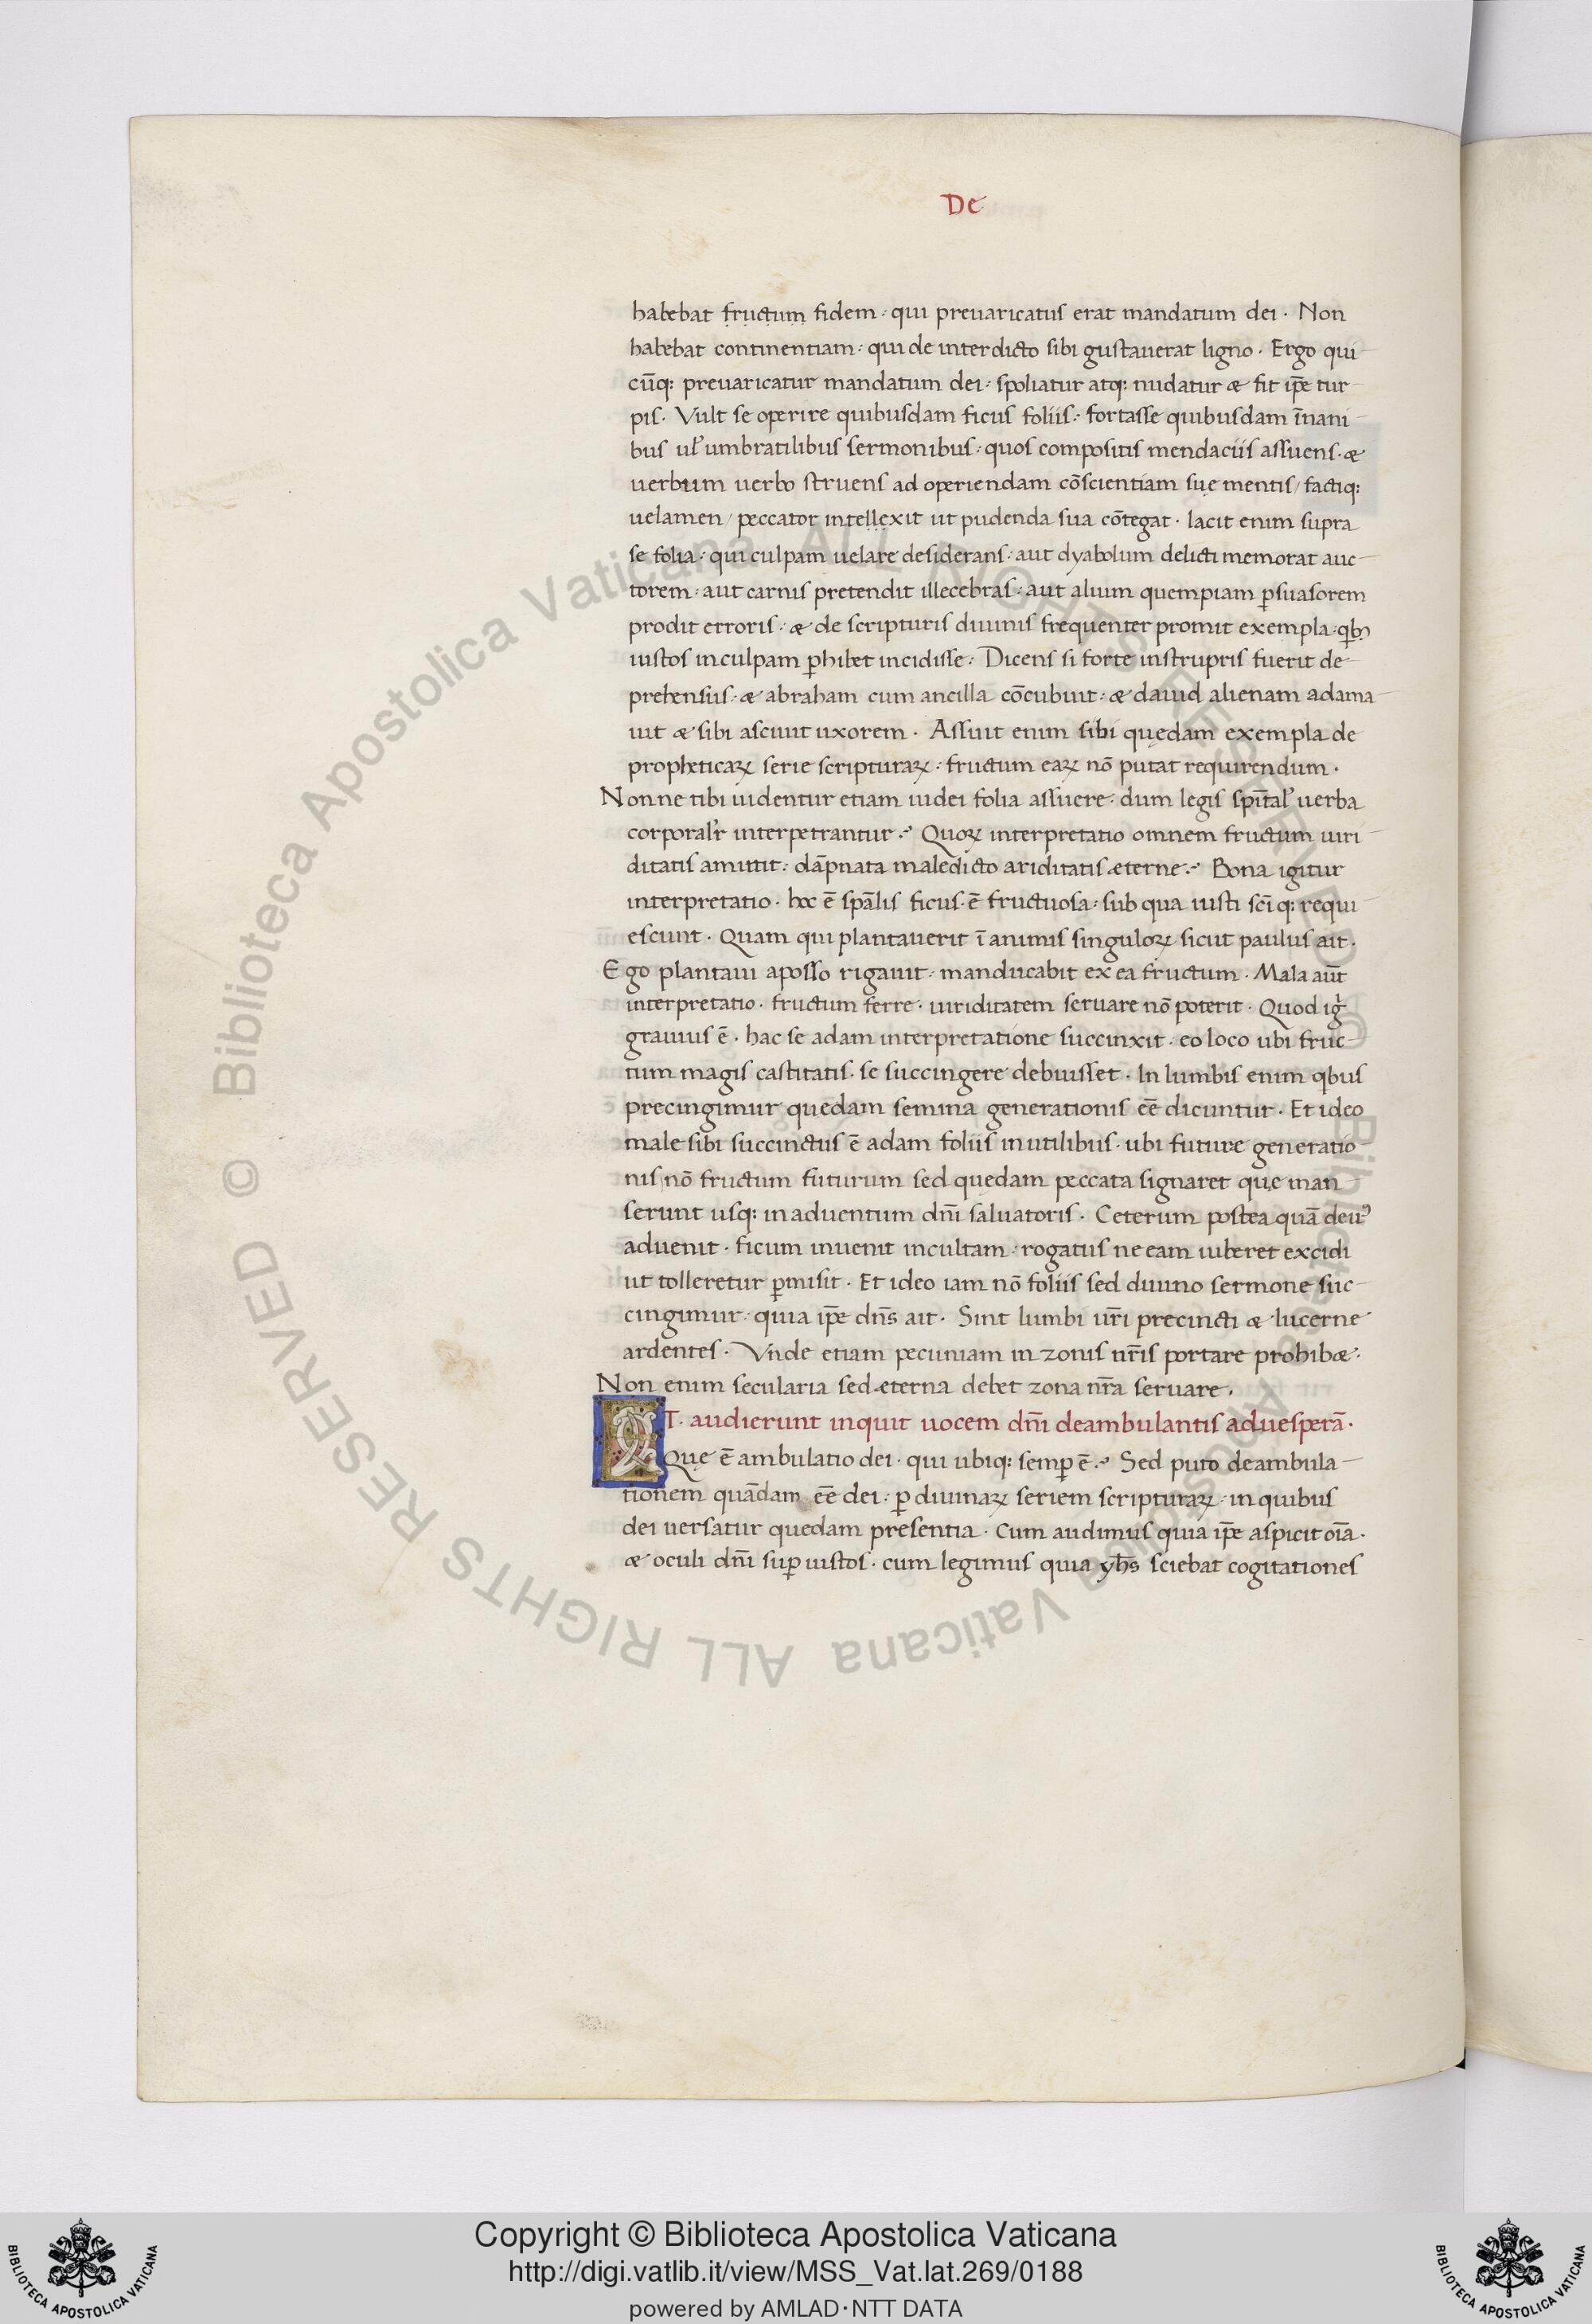 De
habebat fructum fidem : qui preuaricatus erat mandatum dei · Non
habebat continentiam : qui de interdicto sibi gustauerat ligno · Ergo qui
cūq: preuaricatur mandatum dei : spoliatur atq: nudatur & fit ip̄e tur
pis · Vult se operire quibusdam ficus foliis : fortasse quibusdam īnani
bus ul' umbratilibus sermonibus : quos compositis mendaciis assuens · &
uerbum uerbo struens ad operiendam cōscientiam suę mentis / factiq:
uelamen / peccator intellexit ut pudenda sua cōtegat · Iacit enim supra
se folia : qui culpam uelare desiderans : aut dyabolum delicti memorat auc-
torem : aut carnis pretendit illecebras : aut alium quempiam ꝑsuasorem
prodit erroris : & de scripturis diuinis frequenter promit exempla : qb;
iustos in culpam ꝑhibet incidisse : Dicens si forte in strupris fuerit de-
prehensus : & abraham cum ancilla cōcubuit : & dauid alienam adama-
uit & sibi asciuit uxorem · Assuit enim sibi quędam exempla de
propheticaꝝ serie scripturaꝝ : fructum eaꝝ nō putat requirendum ·
Nonne tibi uidentur etiam iudei folia assuere · dum legis spīтal' uerba
corporal'r interpetrantur : Quoꝝ interpretatio omnem fructum uiri-
ditatis amittit : dāpnata maledicto ariditatis æterne : Bona igitur
interpretatio · hoc ē spālis ficus · ē fructuosa : sub qua iusti sc̄iq: requi-
escunt · Quam qui plantauerit ī animis singuloꝝ sicut paulus ait ·
Ego plantaui apollo rigauit : manducabit ex ea fructum · Mala aūt
interpretatio · fructum ferre · uiriditatem seruare nō poterit · Quod ig̓
grauius ē · hac se adam interpretatione succinxit · eo loco ubi fruc-
tum magis castitatis · se succingere debuisset · In lumbis enim qbus
precingimur quędam semina generationis eē dicuntur · Et ideo
male sibi succinctus ē adam foliis inutilibus · ubi future generatio-
nis nō fructum futurum sed quędam peccata signaret quę man-
serunt usq: in aduentum dn̄i saluatoris · Ceterum postea quā deuꝰ
aduenit · ficum inuenit incultam : rogatus ne eam iuberet excidi
ut tolleretur ꝑmisit · Et ideo iam nō foliis sed diuino sermone suc-
cingimur : quia ip̄e dn̄s ait · Sint lumbi ur̄i precincti & lucerne
ardentes · Vnde etiam pecuniam in zonis nr̄is portare prohib& :
Non enim secularia sed æterna debet zona nr̄a seruare ·
ET · audierunt inquit uocem dn̄i deambulantis ad uesperā ·
Quę ē ambulatio dei · qui ubiq: semꝑ ē : Sed puto deambula-
tionem quādam eē dei : ꝑ diuinaꝝ seriem scripturaꝝ · in quibus
dei uersatur quedam presentia · Cum audimus quia ip̄e aspicit oīa ·
& oculi dn̄i suꝑ iustos · cum legimus quia yh̄s sciebat cogitationes
Copyright © Biblioteca Apostolica Vaticana
http://digi.vatlib.it/view/MSS_Vat.lat.269/0188
powered by AMLAD·NTT DATA
BIBLIOTECA APOSTOLICA VATICANA
BIBLIOTECA APOSTOLICA VATICANA
© Biblioteca Apostolica Vaticana ALL RIGHTS RESERVED
© Biblioteca Apostolica Vaticana ALL RIGHTS RESERVED